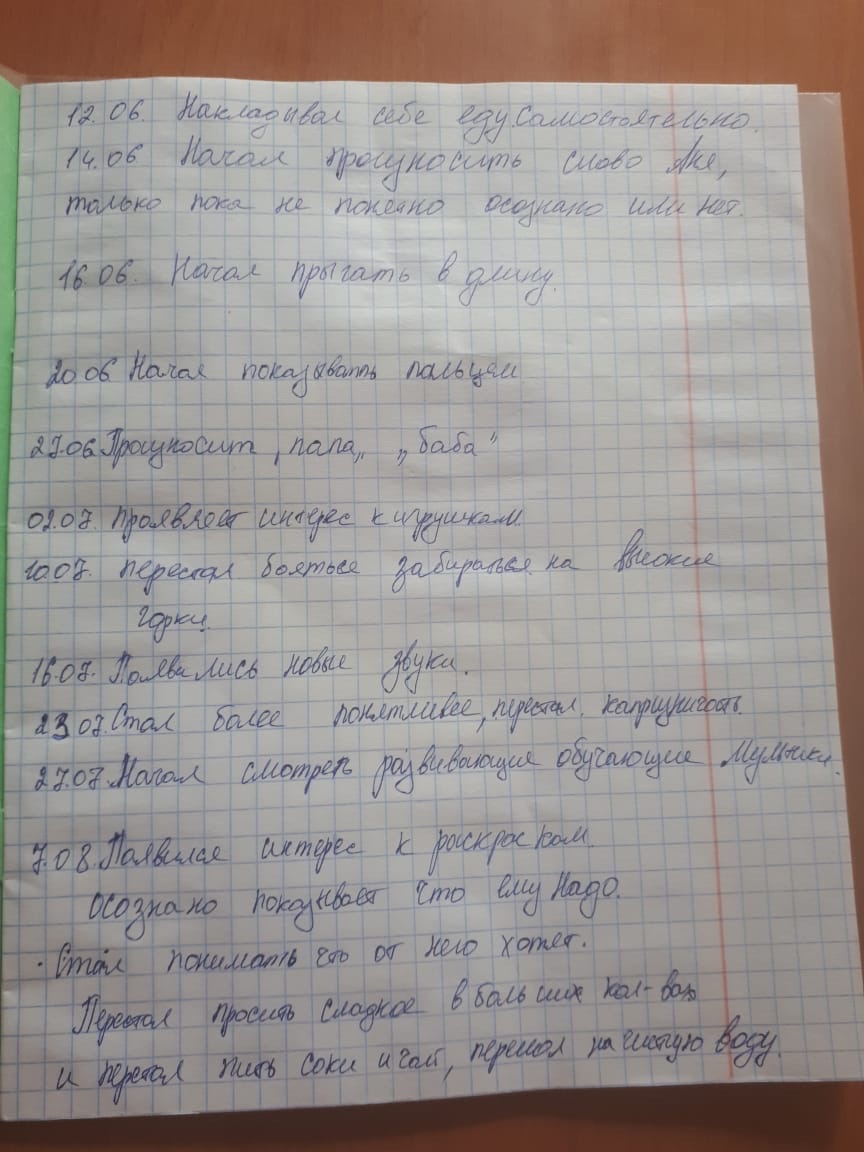 12.06. Накладывал себе еду самостоятельно.
14.06 Начал произносить слово Аня,
только пока не понятно осознано или нет.
16.06. Начал прыгать в длину.
20.06 Начал показывать пальцем
27.06. Произносит „папа„ „баба“
02.07. проявляет интерес к игрушкам.
10.07. перестал бояться забираться на высокие
горки.
16.07. Появились новые звуки.
23.07. Стал более понятливее, перестал капризничать.
27.07. Начал смотреть развивающие обучающие мультики.
7.08. Появился интерес к раскраскам.
осознано показывает что ему надо.
· Стал понимать что от него хотят.
Перестал просить сладкое в больших кол-вах
и перестал пить соки и чай, перешол на чистую воду.